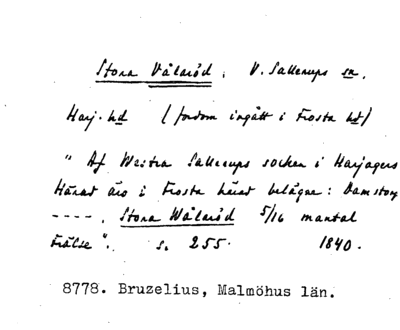 Stora Vålaröd, V. Sallerups sn,
Harj. hd (fordom ingått i Frosta hd)
" Af Westra Sallerups socken i Harjagers
Härad äro i Frosta härad belägne: Damstorp
----, Stora Wålaröd 5/16 mantal
Frälse". s. 255. 1840.
8778. Bruzelius, Malmöhus län.